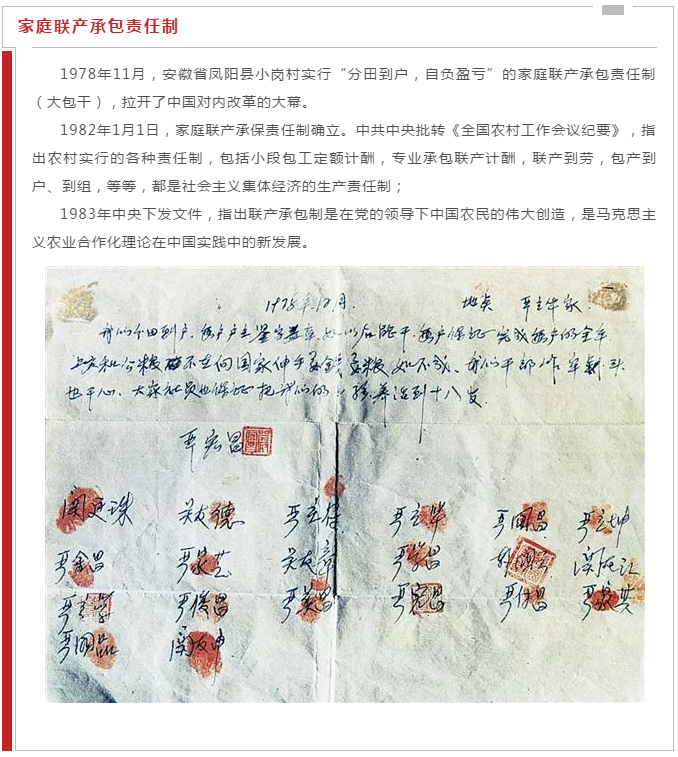 家庭联产承包责任制
1978年11月，安徽省凤阳县小岗村实行“分田到户，自负盈亏”的家庭联产承包责任制
（大包干），拉开了中国对内改革的大幕。
1982年1月1日，家庭联产承保责任制确立。中共中央批转《全国农村工作会议纪要》，指
出农村实行的各种责任制，包括小段包工定额计酬，专业承包联产计酬，联产到劳，包产到
户、到组，等等，都是社会主义集体经济的生产责任制；
1983年中央下发文件，指出联产承包制是在党的领导下中国农民的伟大创造，是马克思主
义农业合作化理论在中国实践中的新发展。
1978年12月. 地点 严立华家
我们分田到户，每户户主签字盖章，如以后能干，每户保证完成每户的全年
上交和公粮 不在向国家伸手要钱要粮，如不成，我们干部作牢 头
也干心，大家社员也保证把我们的小孩养活到十八岁。
严宏昌
关廷珠 关友德 严立符 严立华 严国昌 严立坤
严金昌 严家芝 关友章 严学昌 韩国云 关友江
严立学 严俊昌 严美昌 严宏昌 严付昌 严家其
严国品 关友申